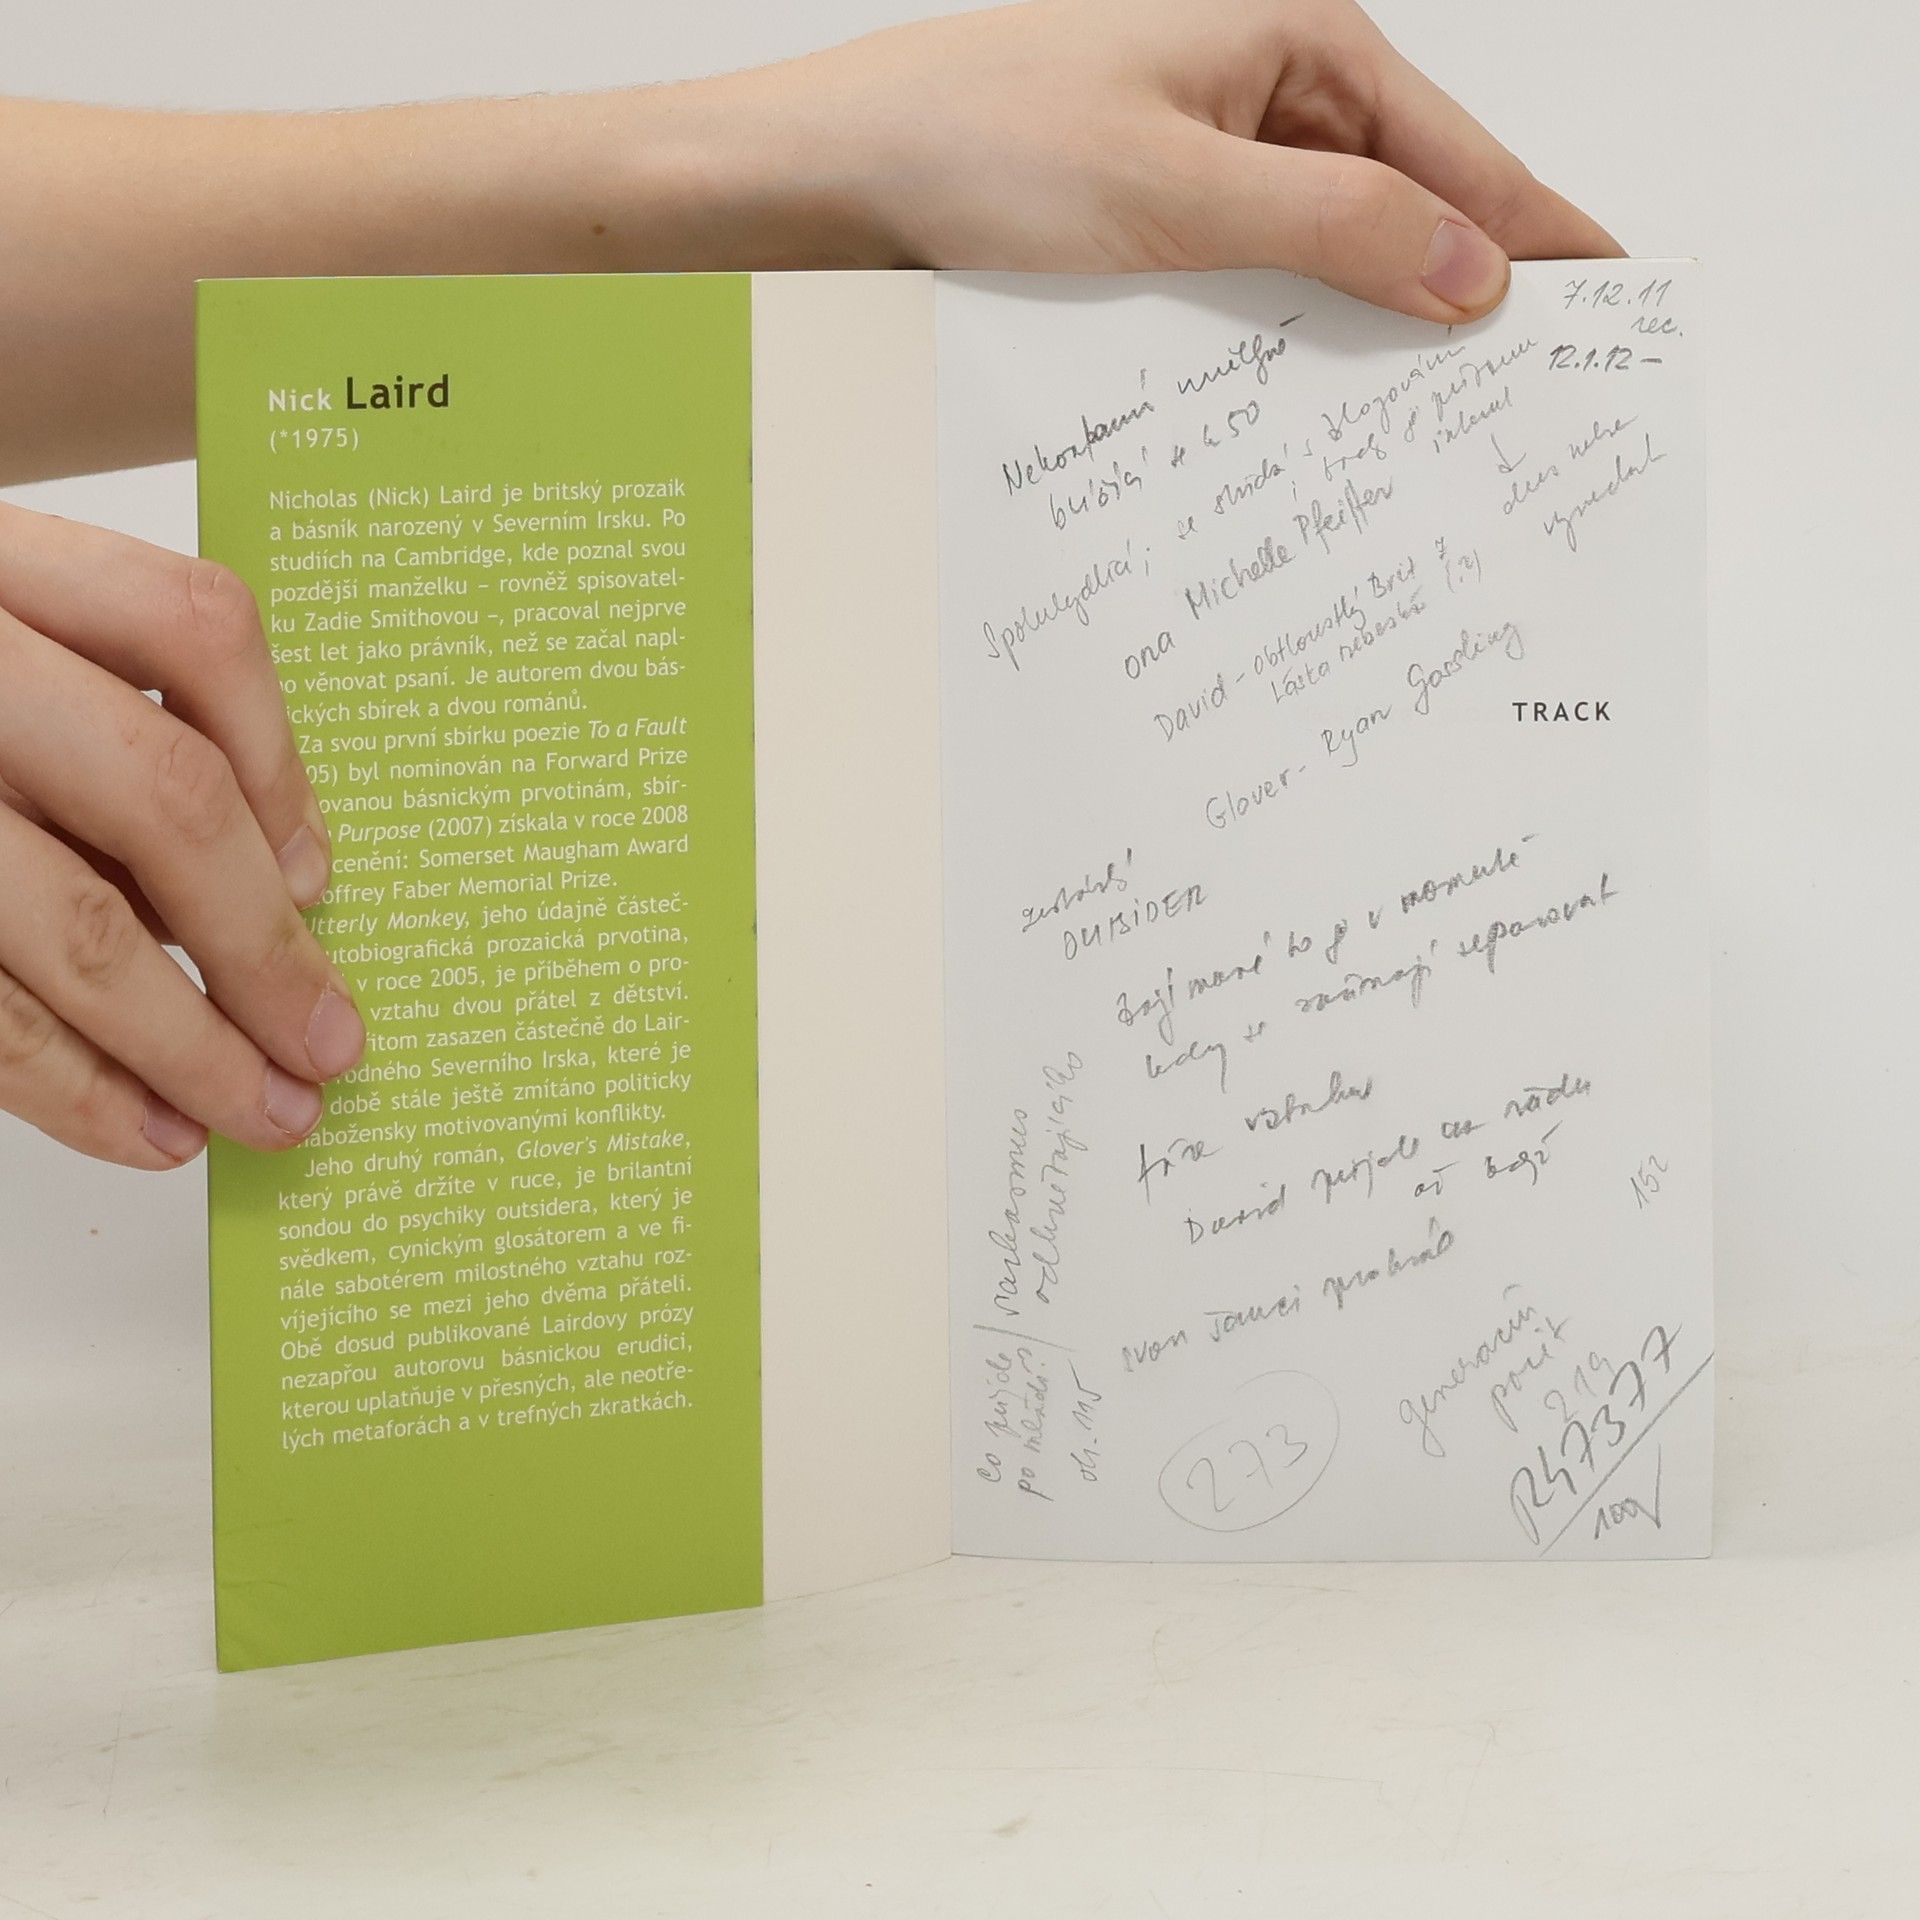 Nick Laird
(*1975)
Nicholas (Nick) Laird je britský prozaik
a básník narozený v Severním Irsku. Po
studiích na Cambridge, kde poznal svou
pozdější manželku – rovněž spisovatel-
ku Zadie Smithovou –, pracoval nejprve
šest let jako právník, než se začal napl-
no věnovat psaní. Je autorem dvou bás-
ických sbírek a dvou románů.
Za svou první sbírku poezie To a Fault
05) byl nominován na Forward Prize
ovanou básnickým prvotinám, sbír-
Purpose (2007) získala v roce 2008
cenění: Somerset Maugham Award
offrey Faber Memorial Prize.
Utterly Monkey, jeho údajně částeč-
utobiografická prozaická prvotina,
v roce 2005, je příběhem o pro-
vztahu dvou přátel z dětství.
řitom zasazen částečně do Lair-
rodného Severního Irska, které je
době stále ještě zmítáno politicky
nabožensky motivovanými konflikty.
Jeho druhý román, Glover's Mistake,
který právě držíte v ruce, je brilantní
sondou do psychiky outsidera, který je
svědkem, cynickým glosátorem a ve fi-
nále sabotérem milostného vztahu roz-
víjejícího se mezi jeho dvěma přáteli.
Obě dosud publikované Lairdovy prózy
nezapřou autorovu básnickou erudici,
kterou uplatňuje v přesných, ale neotře-
lých metaforách a v trefných zkratkách.
7.12.11
rec.
12.1.12 –
se 50
Spolubydlící; se střídá s
ona Michelle Pfeiffer
dnes nelze
David – obtloustlý Brit
Láska nebeská (?)
Glover – Ryan Gosling
TRACK
OUTSIDER
Zajímavé to je v momentě
kdy se začínají separovat
fáze vztahu
David přijde na řadu
až když
152
co přijde
po mládí?
str. 115
sarkasmus
273
generační
219
R47377
100